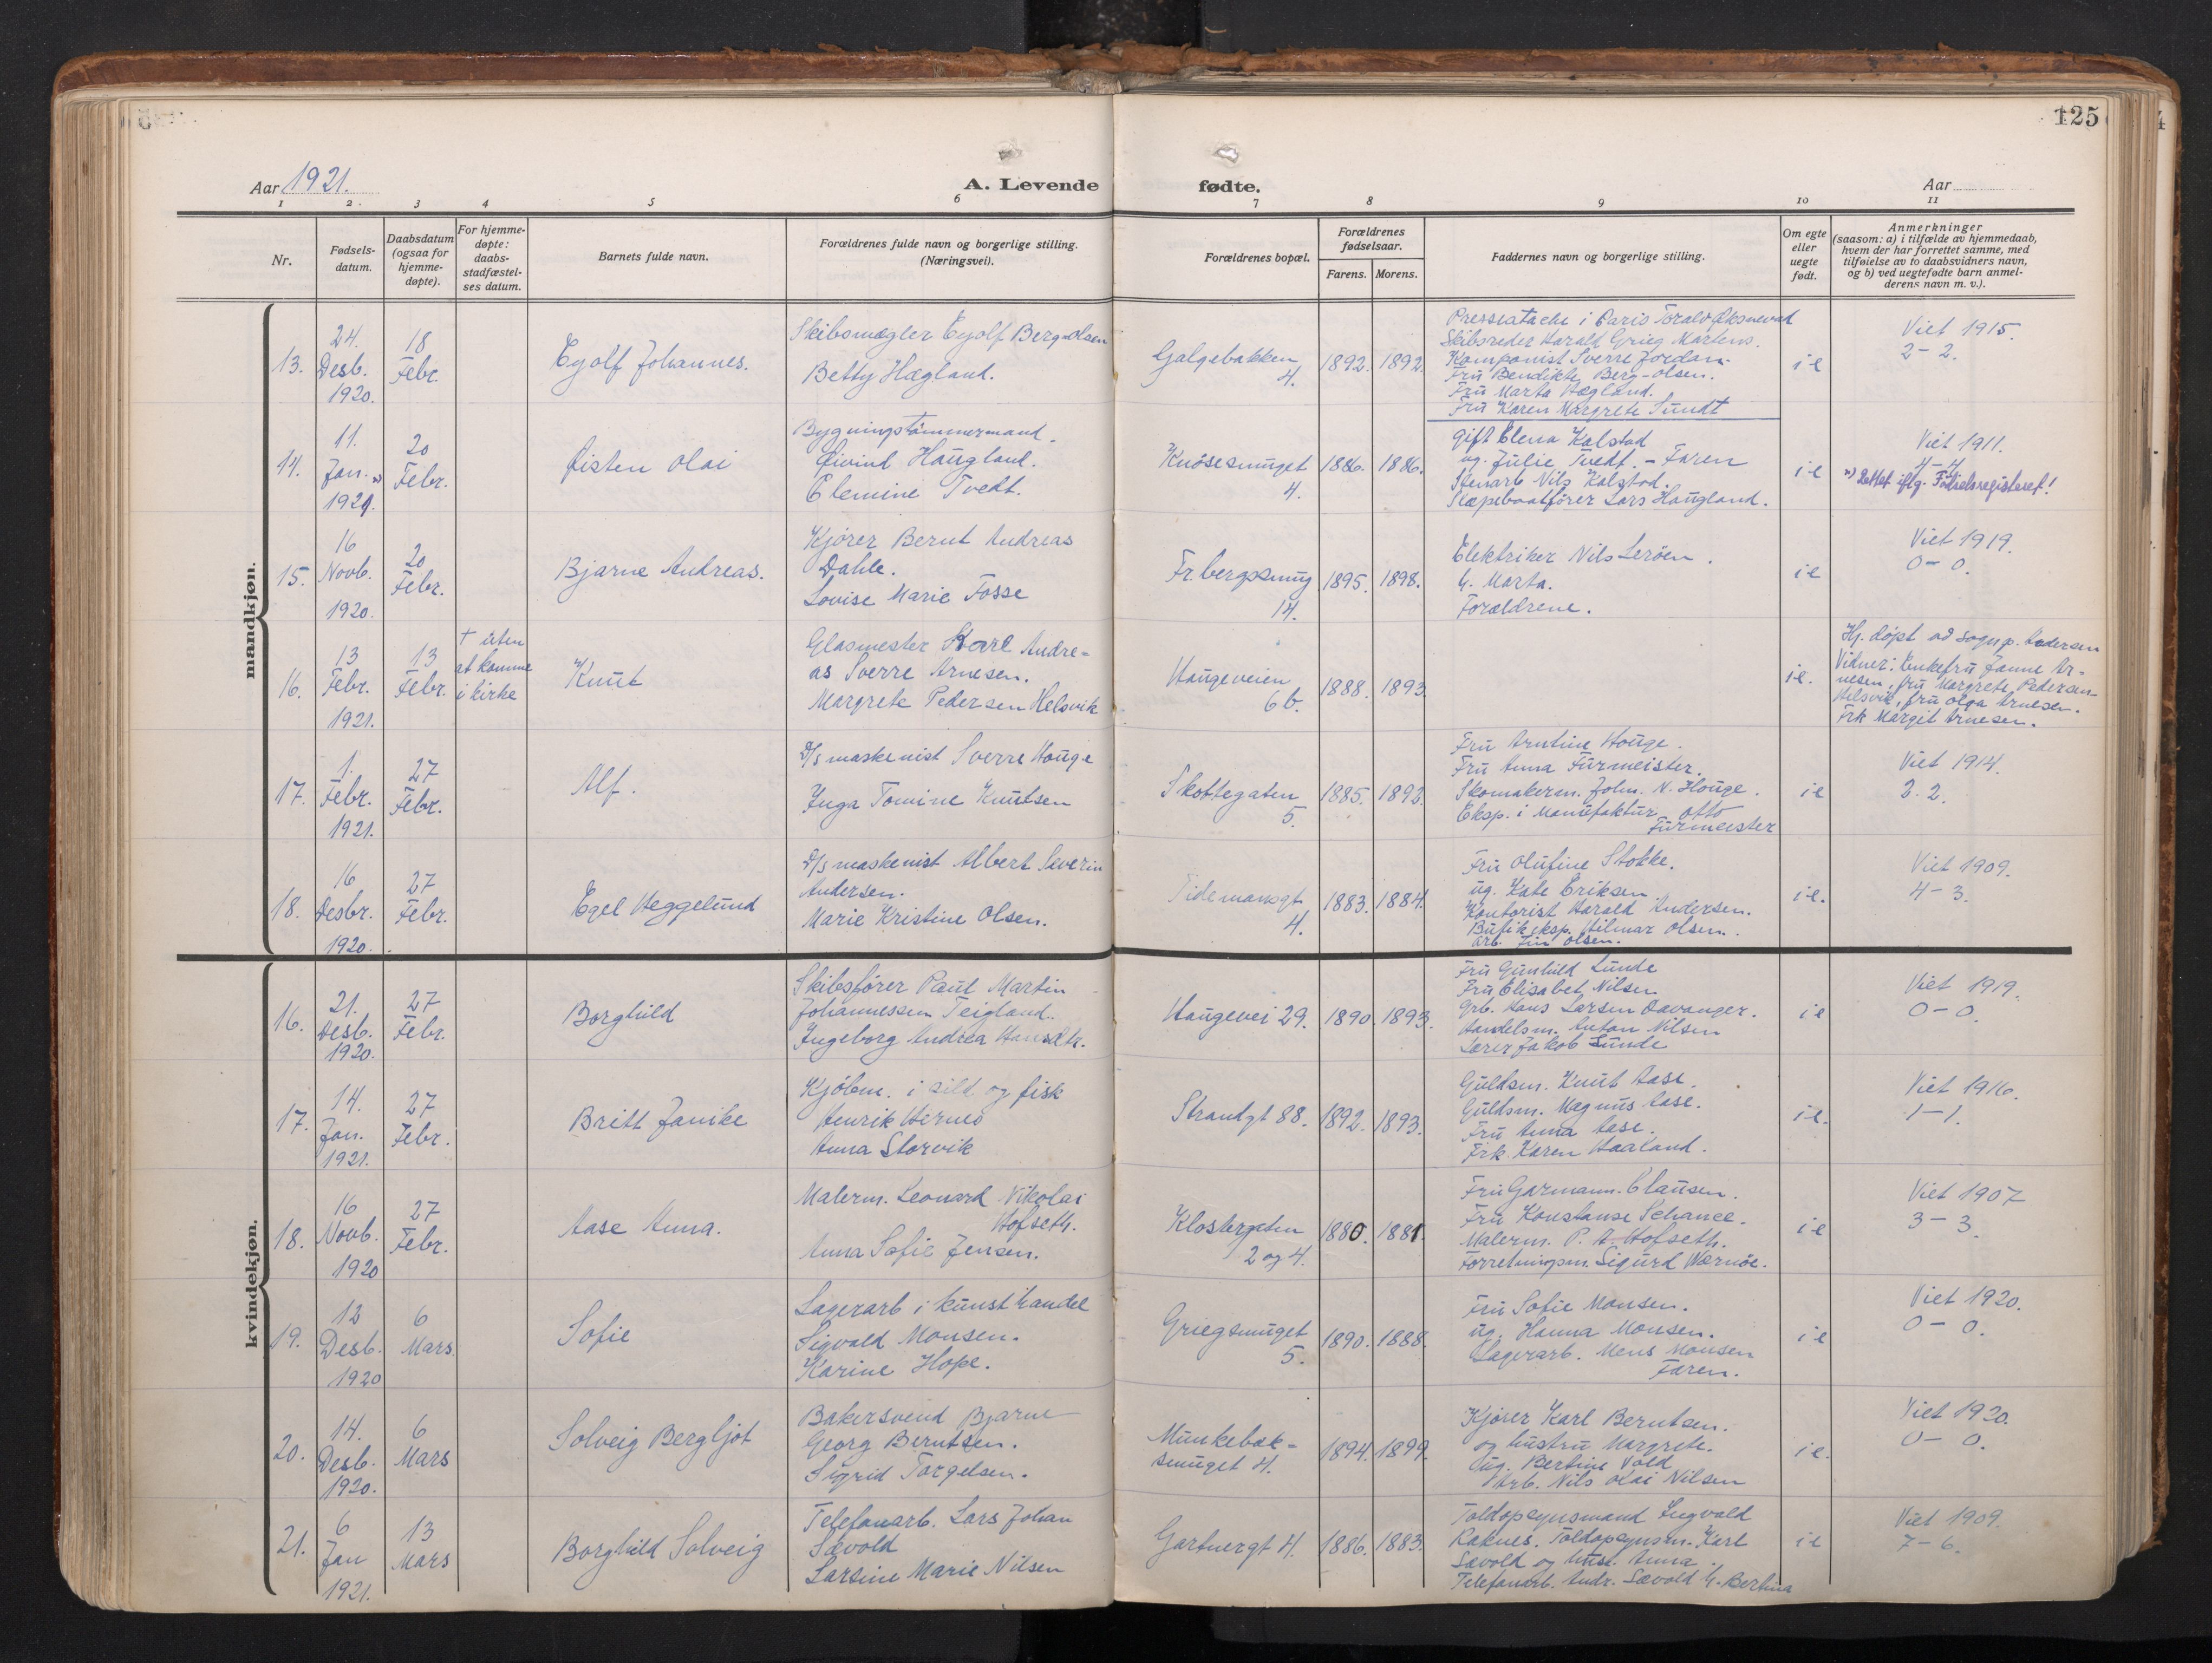 125
Aar 1921.
A. Levende
fødte.
Aar
1 2. 3 4 5 6 7 8 9 10 11
Nr.
Fødsels-
datum.
Daabsdatum
(ogsaa for
hjemme-
døpte).
For hjemme-
døpte:
daabs-
stadfæstel-
ses datum.
Barnets fulde navn.
Forældrenes fulde navn og borgerlige stilling.
(Næringsvei).
Forældrenes bopæl.
Forældrenes
fødselsaar.
Farens. Morens.
Faddernes navn og borgerlige stilling.
Om egte
eller
uegte
født.
Anmerkninger
(saasom: a) i tilfælde av hjemmedaab,
hvem der har forrettet samme, med
tilføielse av to daabsvidners navn,
og b) ved uegtefødte barn anmel-
derens navn m. v.).
mandkjøn.
13.
24.
Desb.
1920.
18
Febr.
Eyolf Johannes.
Skibsmægler Eyolf Berg-Olsen
Betty Hægland.
Galgebakken
4.
1892. 1892.
Presseatache i Paris Toralv Øksnevad
Skibsreder Harald Grieg Martens.
Komponist Sverre Jordan.
Fru Bendikte Berg-Olsen.
Fru Marta Hægland.
Fru Karen Margrete Sundt
ie
Viet 1915.
2-2.
14.
11.
Jan.
1921.
20
Febr.
Øisten Olai
Bygningstømmermand.
Øivind Haugland.
Elemine Tvedt.
Knøsesmuget
4.
1886. 1886.
gift Elena Kalstad
ug. Julie Tvedt. - Faren
Stenarb Nils Kalstad.
Slæpebaatfører Lars Haugland.
ie
Viet 1911.
4-4
Rettet iflg. Fødselsregisteret!
15.
16
Novb.
1920.
20
Febr.
Bjarne Andreas.
Kjører Bernt Andreas
Dahle.
Lovise Marie Fosse
Fr. bergssmug
14.
1895. 1898.
Elektriker Nils Lerøen.
H. Marta.
Forældrene.
ie
Viet 1919.
0-0.
16.
13
Febr.
1921.
13
Febr.
† uten
at komme
i kirke
Knut
Glasmester Karl Andre-
as Sverre Arnesen.
Margrete Pedersen Helsvik
Haugeveien
6b.
1888. 1893.
ie.
Hj. døpt ad sogнp. Andersen
Vidner: Enkefru Janne Ar-
nesen, fru Margrete Pedersen
Helsvik, fru Olga Arnesen.
Frk Margit Arnesen.
17.
1.
Febr.
1921.
27
Febr.
Alf.
D/s maskenist Sverre Houge
Inga Tomine Knutsen
Skottegaten
5.
1885. 1892.
Fru Arntine Houge.
Fru Anna Furmeister.
Skomakerm. Johs. N. Houge.
Eksp. i Manufaktur Otto
Furmeister
ie
Viet 1914.
2-2.
18.
16
Desbr.
1920.
27
Febr.
Egel Heggelund
D/s maskenist Albert Severin
Andersen.
Marie Kristine Olsen.
Tidemansgt
4.
1883. 1884.
Fru Olufine Stokke.
ug. Kate Eriksen.
Kontorist Harald Andersen.
Butikeksp. Hilmar Olsen.
arb. Olsen.
ie.
Viet 1909.
4-3.
kvindekjøn.
16.
21.
Desb.
1920.
27
Febr.
Borghild
Skibsfører Paul Martin
Johannessen Teigland.
Ingeborg Andrea Hansdtr.
Haugevei 29.
1890. 1893.
Fru Gunhild Lunde
Fru Elisabet Nilsen
Grb. Hans Larsen Davanger.
Handelsm. Anton Nilsen
Lærer Jakob Lunde
ie
Viet 1919.
0-0.
17.
14.
Jan.
1921.
27
Febr.
Britt Janike
Kjøbm. i sild og fisk
Henrik Hernes
Anna Storvik
Strandgt 88.
1892. 1893.
Guldsm. Knut Aase.
Guldsm. Magnus Aase.
Fru Anna Aase.
Frk Karen Haaland.
ie.
Viet 1916.
1-1.
18.
16
Novb.
1920
27
Febr.
Aase Anna.
Malerm. Leonard Nikolai
Hofseth.
Anna Sofie Jensen.
Klostergaten
2 og 4.
1880. 1881.
Fru Garmann-Clausen.
Fru Konstanse Schanee.
Malerm. P. A. Hofseth.
Forretningsm. Sigurd Wernøe.
ie
Viet 1907
3-3.
19.
12
Desb.
1920
6
Mars.
Sofie
Lagerarb i kunsthandel
Sigvald Monsen.
Karine Hope.
Griegsmuget
5.
1890. 1888.
Fru Sofie Monsen.
ug. Hanna Monsen.
Lagerarb. Mens Monsen
Faren.
ie
Viet 1920.
0-0.
20.
14.
Desb.
1920.
6
Mars
Solveig Bergljot
Bakersvend Bjarne
Georg Berntsen.
Sigrid Torgelsen.
Munkebæk-
smuget 4.
1894. 1899.
Kjører Karl Berntsen.
og hustru Margrete.
ug. Bertine Vold
Arb. Nils Olai Nilsen
ie.
Viet 1920.
0-0.
21.
6
Jan
1921.
13
Mars
Borghild Solveig
Telefonarb. Lars Johan
Sævold
Larsine Marie Nilsen
Gartnergt 4.
1886. 1883.
Toldopsynsmand Ingvald
Raknes. Toldopsynsm. Karl
Sævold og hust. Anna.
Telefonarb. Andr. Sævold H. Bertina
ie
Viet 1909.
7-6.